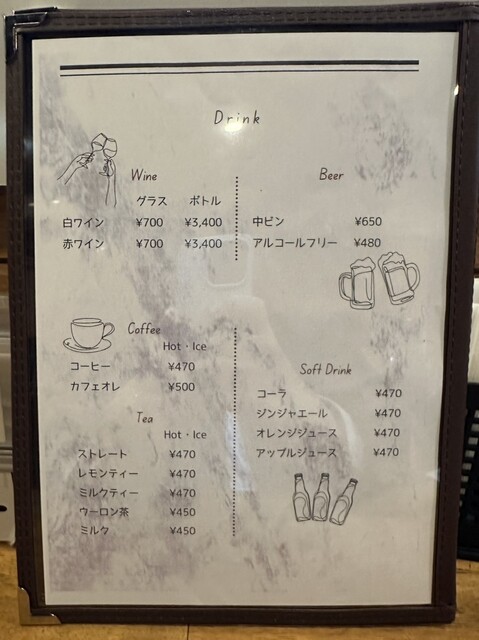 Drink
Wine
グラス ボトル
白ワイン ¥700 ¥3,400
赤ワイン ¥700 ¥3,400
Beer
中ビン ¥650
アルコールフリー ¥480
Coffee
Hot・Ice
コーヒー ¥470
カフェオレ ¥500
Tea
Hot・Ice
ストレート ¥470
レモンティー ¥470
ミルクティー ¥470
ウーロン茶 ¥450
ミルク ¥450
Soft Drink
コーラ ¥470
ジンジャエール ¥470
オレンジジュース ¥470
アップルジュース ¥470